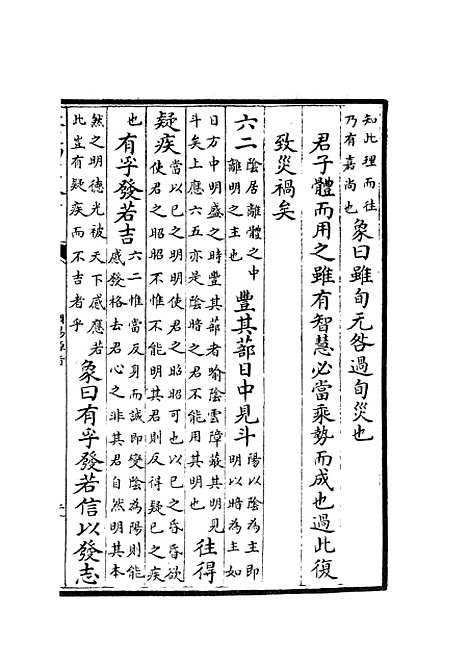 知此理而往
乃有嘉尚也
象曰雖旬无咎過旬災也
君子體而用之雖有智慧必當乗勢而成也過此復
致災禍矣
六二
隂居離體之中
離明之主也
豐其蔀日中見斗
陽以隂為主即
明以時為主如
日方中明盛之時豐其蔀者喻隂雲障蔽其明見
斗矣上應六五亦是隂時之君不能用其明也
往得
疑疾
當以己之明明使君之昭昭可也以己之昏昏欲
使君之昭昭不惟不能明其君則反得疑己之疾
也
有孚發若吉
六二惟當反身而誠即變隂為陽則能
感發格去君心之非其君自然明其本
然之明德光被天下感應若
此豈有疑疾而不吉者乎
象曰有孚發若信以發志